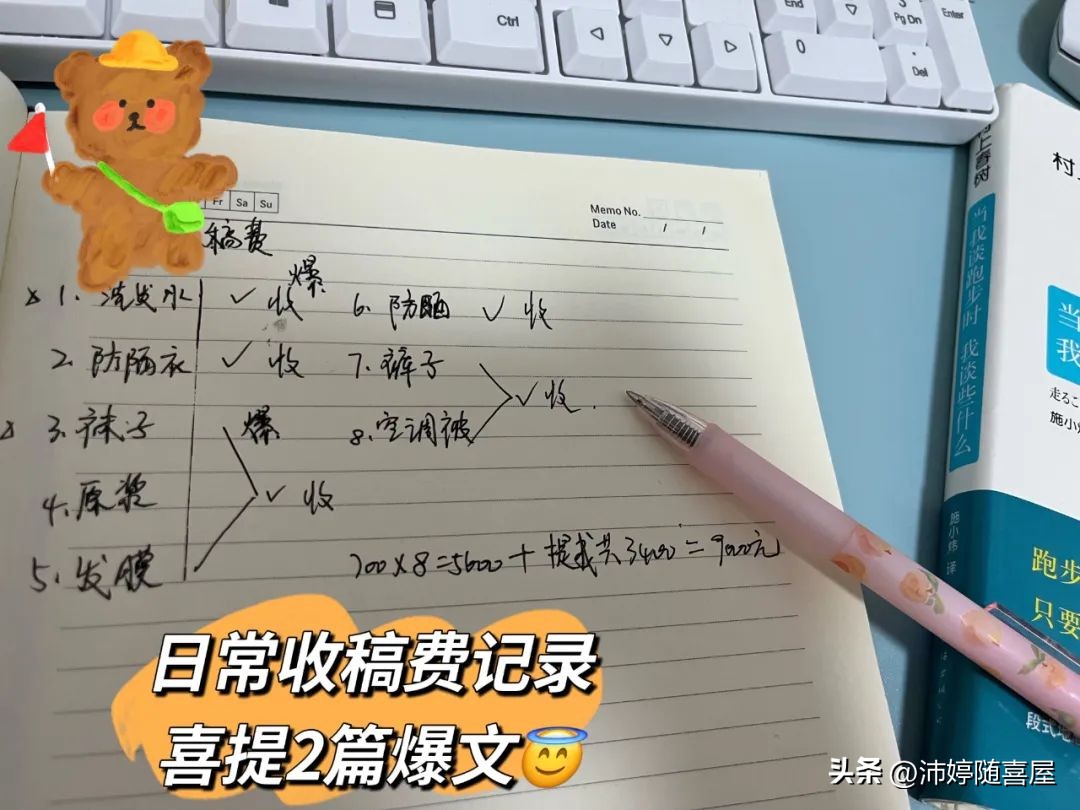 End
3
Pg Dn
Enter
Ctrl
0
Del
Fr Sa Su
Memo No.
Date / /
稿费
1. 洗发水 ✓ 收 爆
2. 防晒衣 ✓ 收
3. 袜子 爆
4. 原浆 ✓ 收
5. 发膜
6. 防晒 ✓ 收
7. 裤子
8. 空调被 ✓ 收.
700×8=5600+提成共3400=9000元
日常收稿费记录
喜提2篇爆文
村上春树
当我谈跑步时 我谈些什么
施小炜 译
村
当
我
走るこ
施小炜
跑步
只要
头条 @沛婷随喜屋